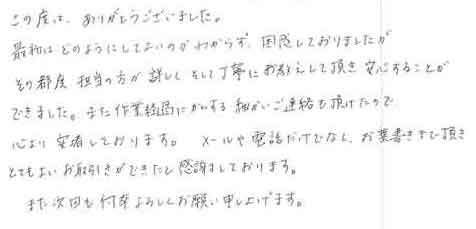 この度は、ありがとうございました。
最初はどのようにしてよいのかわからず、困惑しておりましたが
その都度 担当の方が詳しく そして丁寧にお教えして頂き 安心することが
できました。また作業経過にかんする 細かいご連絡も頂けたので
心より 安堵しております。 メールや電話だけでなく、お葉書きまで頂き
とてもよい お取引きができたと 感謝しております。
また次回も 何卒よろしくお願い申し上げます。